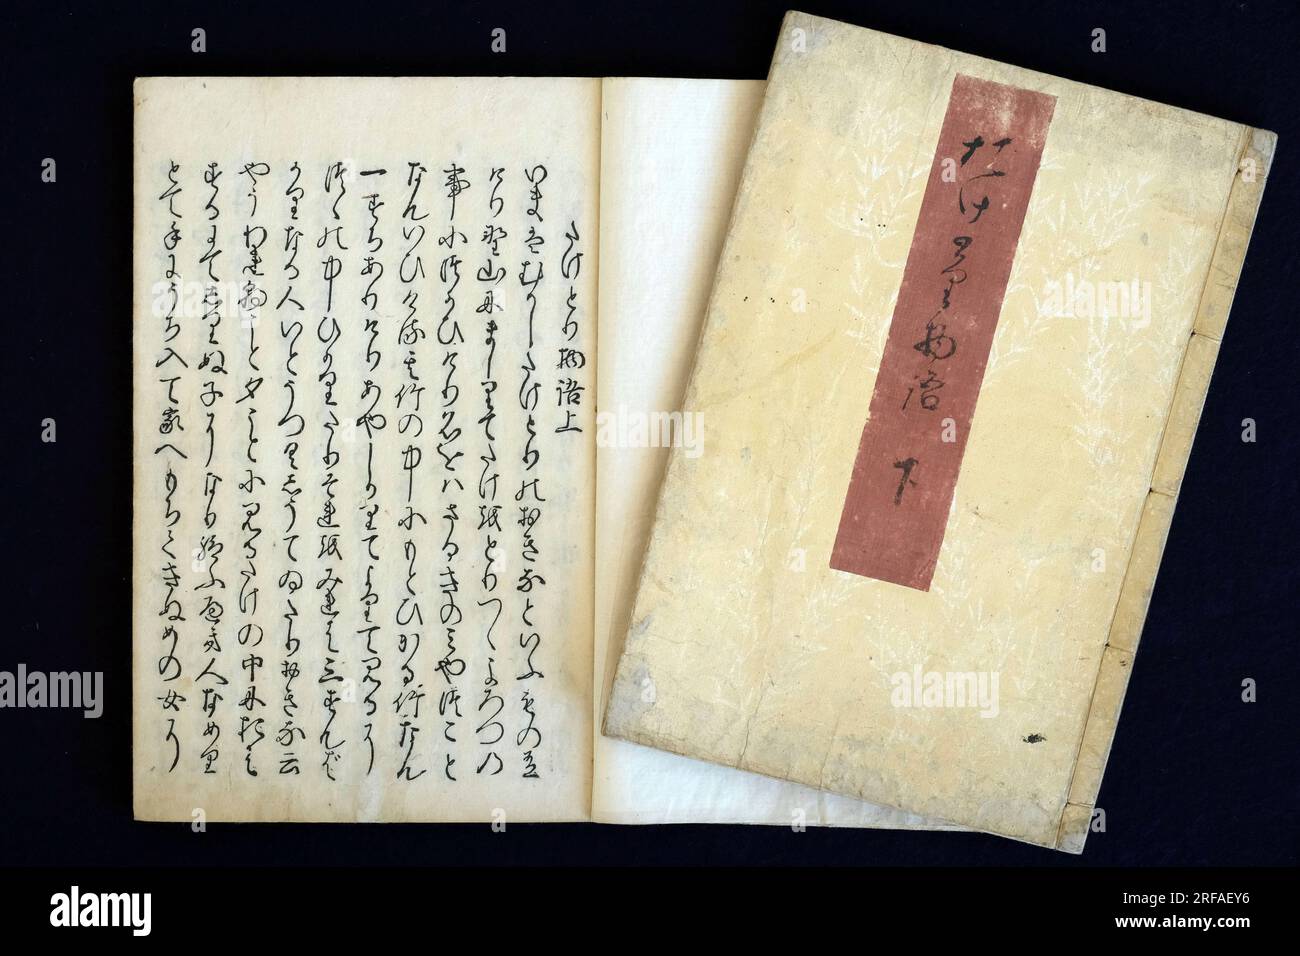 たけとり物語上
いまはむかしたけとりのおきなといふもの有
けり野山にましりてたけをとりつゝよろつの
事につかひけり名をハさるきのミやつこと
なんいひける其竹の中にもとひかる竹なん
一すちありけりあやしかりてよりて見るに
つゝの中ひかりたりそれをみれは三すんば
かりなる人いとうつくしうてゐたりおきな云
やうわれ朝ことタことに見るたけの中におは
するにてしりぬ子になり給ふへき人なめり
とて手にうち入て家へもちてきぬめの女に
たけとり物語 下
alamy
Image ID: 2RFAEY6
www.alamy.com